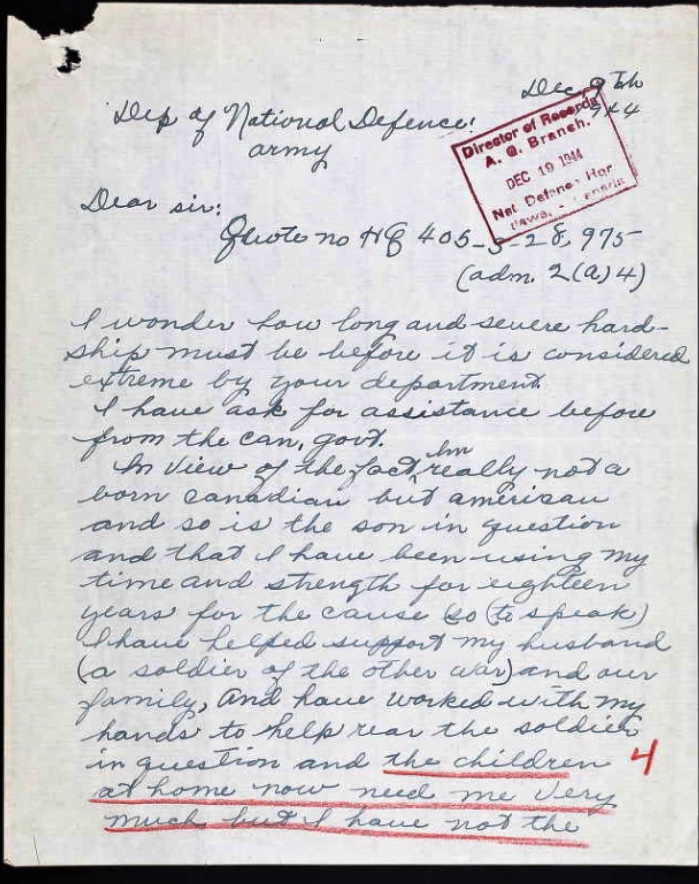 Dec 9th
1944
Dep of National Defence!
army
Director of Records
A. G. Branch.
DEC 19 1944
Nat Defence Hqr
Dear sir:
Quote no HQ 405-S-28,975
(adm. 2(a)4)
I wonder how long and severe hard-
ship must be before it is considered
extreme by your department.
I have ask for assistance before
from the can, govt.
In view of the fact, Im really not a
born canadian but american
and so is the son in question
and that I have been using my
time and strength for eighteen
years for the cause (so (to speak)
I have helped support my husband
(a soldier of the other war) and our
family, And have worked with my
hands to help rear the soldier
in question and the children 4
at home now need me very
much but I have not the